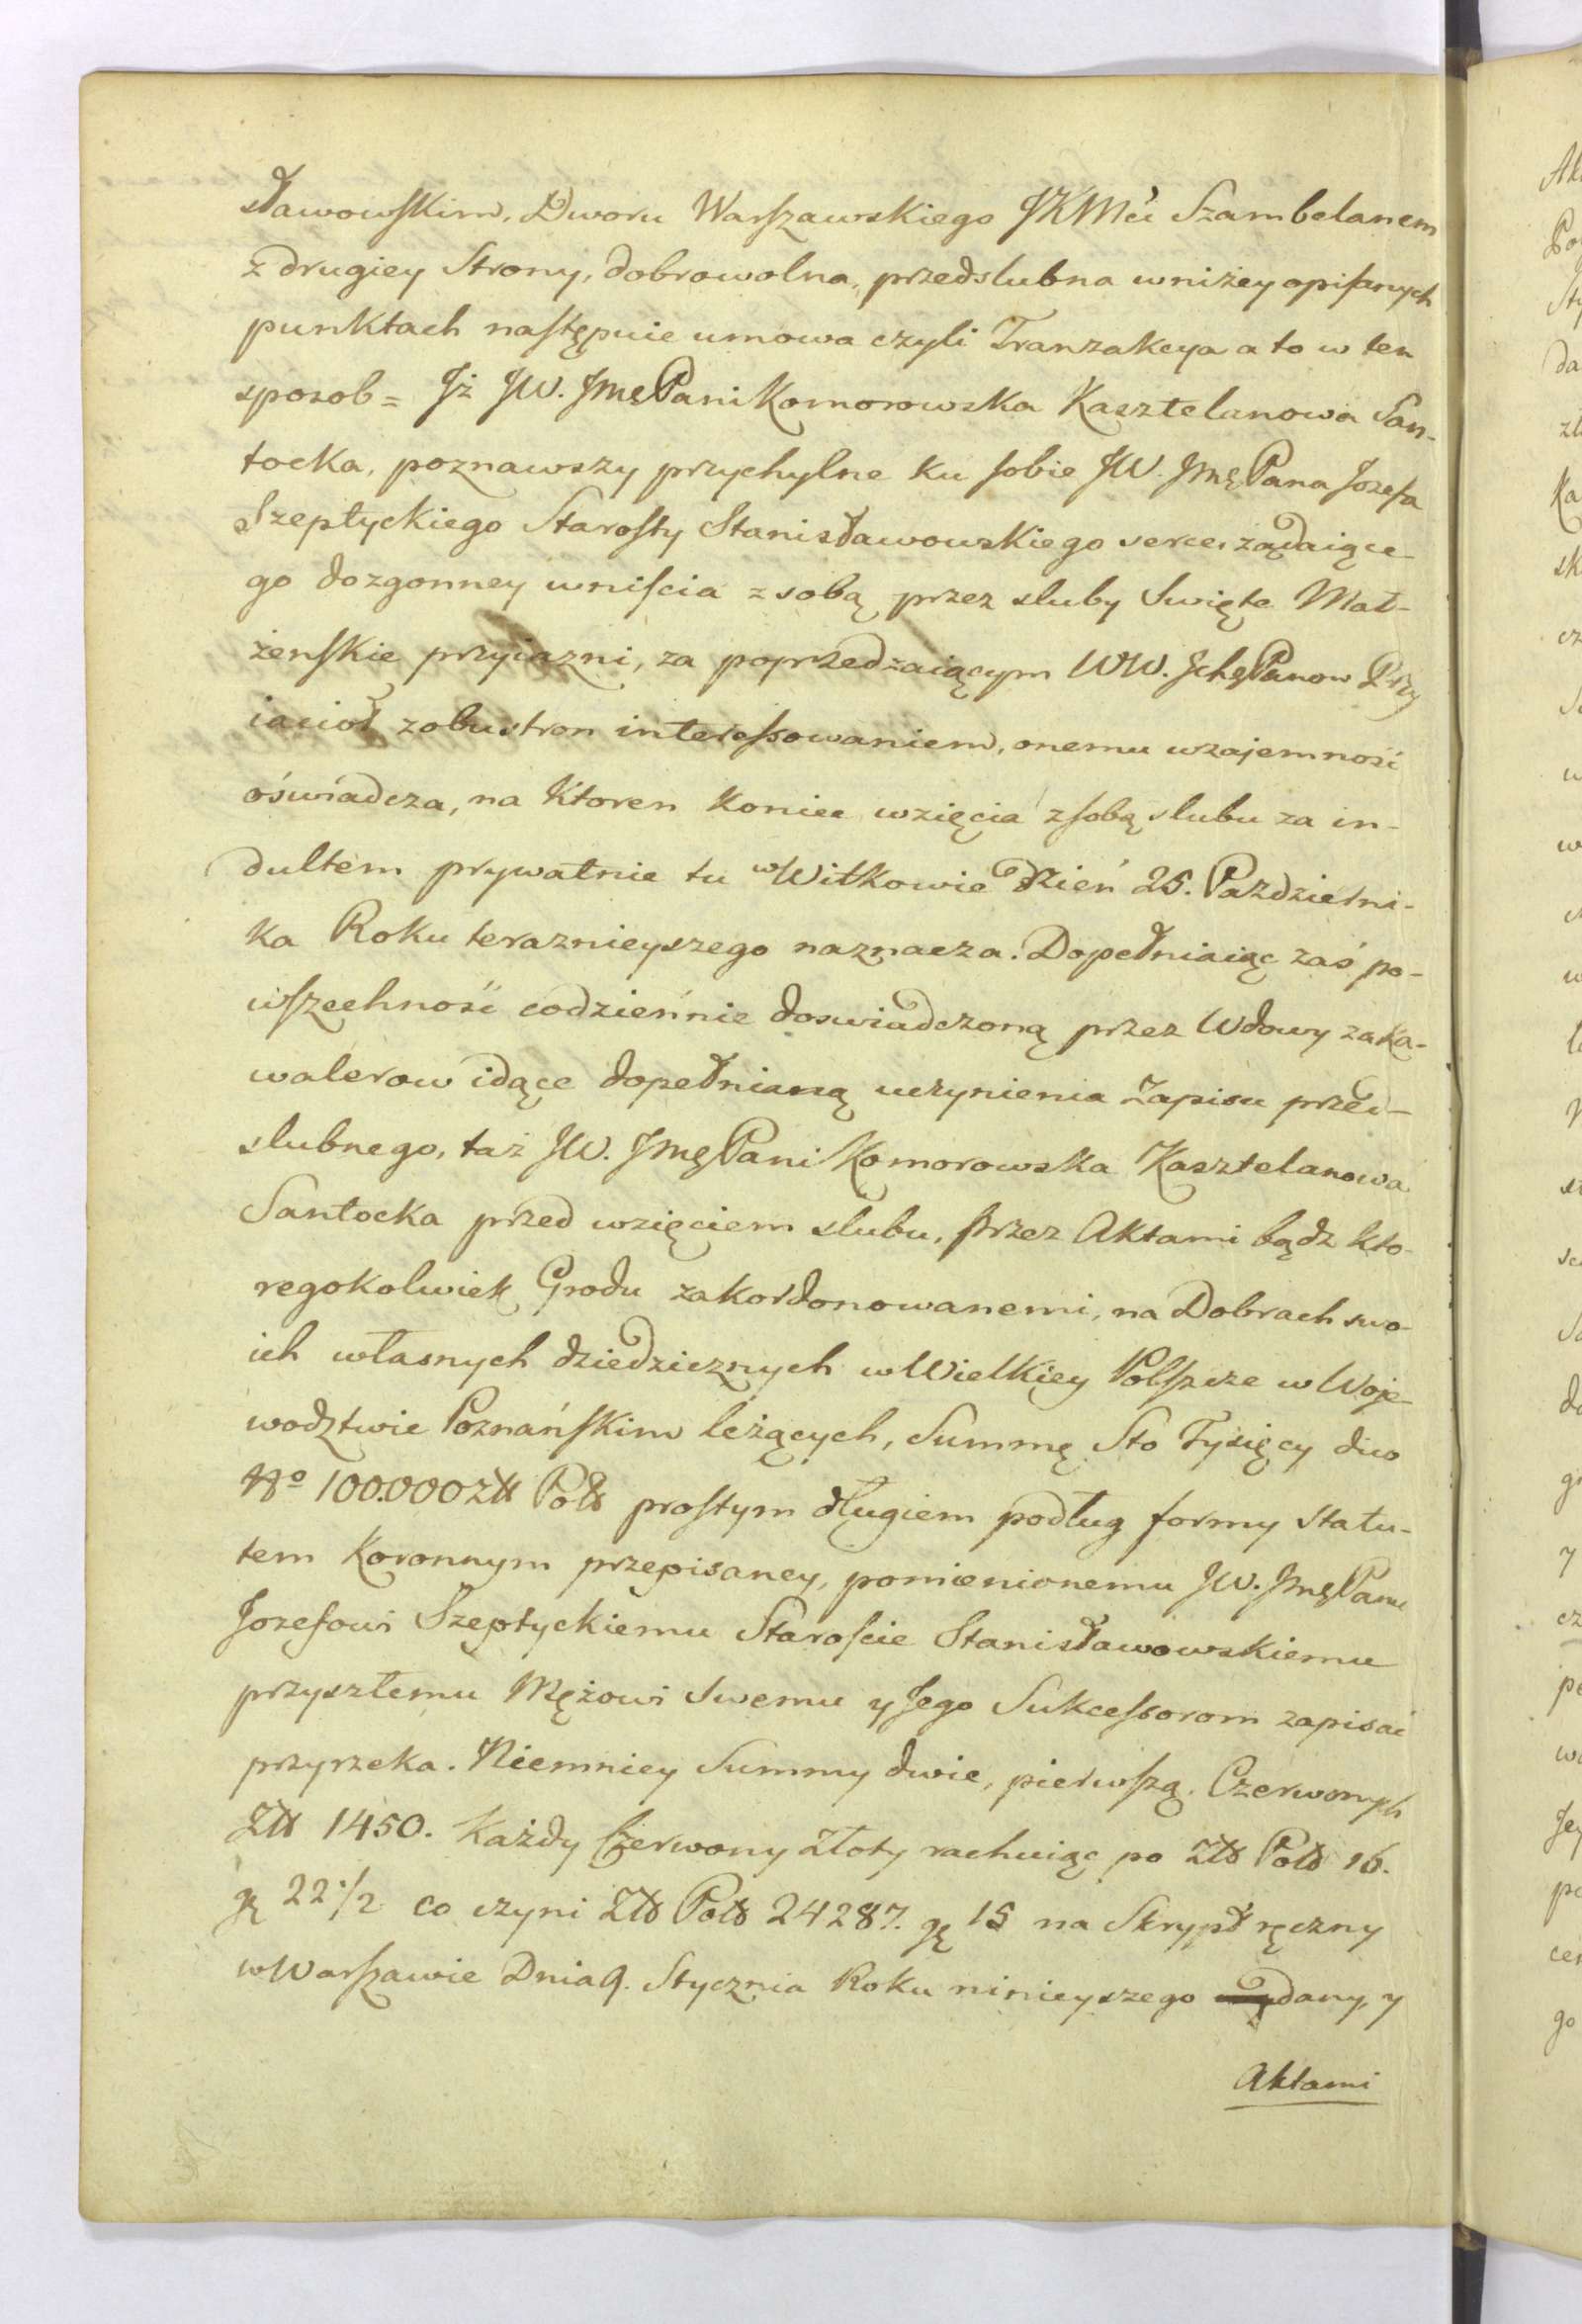 sławowskim, Dworu Warszawskiego JKMći Szambelanem
z drugiey Strony, dobrowolna, przedslubna wniżey opisanych
punktach następuie umowa czyli Tranzakcya a to w ten
sposob = Jż JW. JmęPani Komorowska Kasztelanowa San-
tocka, poznawszy przychylne ku sobie JW. JmęPana Jozefa
Szeptyckiego Starosty Stanisławowskiego serce, ządaiące
go dozgonney wniscia z sobą przez sluby Swięte Mał-
żenskie przyiazni, za poprzedzaiącym WW. JchęPanow Przy
iacioł zobustron interessowaniem, onemu wzajemność
oświadcza, na Ktoren Koniec wzięcia zsobą slubu za in-
dultem prywatnie tu w Witkowie Dzień 25. Pazdzierni-
ka Roku teraznieyszego naznacza. Dopełniaiąc zaś po-
wszechność codzieńnie doswiadczoną przez Wdowy zaKa-
walerow idące dopełnianą uczynienia Zapisu przed-
slubnego, taż JW. JmęPani Komorowska Kasztelanowa
Santocka przed wzięciem slubu, przez Aktami bądz kto-
regokolwiek Grodu zakordonowanemi, na Dobrach swo-
ich własnych dziedzicznych w Wielkiey Polszcze w Woje-
wodztwie Poznańskim leżących, Summę Sto Tysięcy dico
No 100.000 Złł Polł prostym długiem podług formy Statu-
tem Koronnym przepisaney, pomienionemu JW. JmęPanu
Jozefowi Szeptyckiemu Staroscie Stanisławowskiemu
przyszłemu Mężowi swemu y Jego Sukcessorom zapisać
przyrzeka. Niemniey Summy dwie, pierwszą. Czerwonych
Złł 1450. Każdy Czerwony Złoty rachuiąc po Złł Polł 16.
gę 22 1/2 co czyni Złł Polł 24287. gę 15 na Skrypt ręczny
w Warszawie Dnia 9. Stycznia Roku ninieyszego wydany, y
Aktami